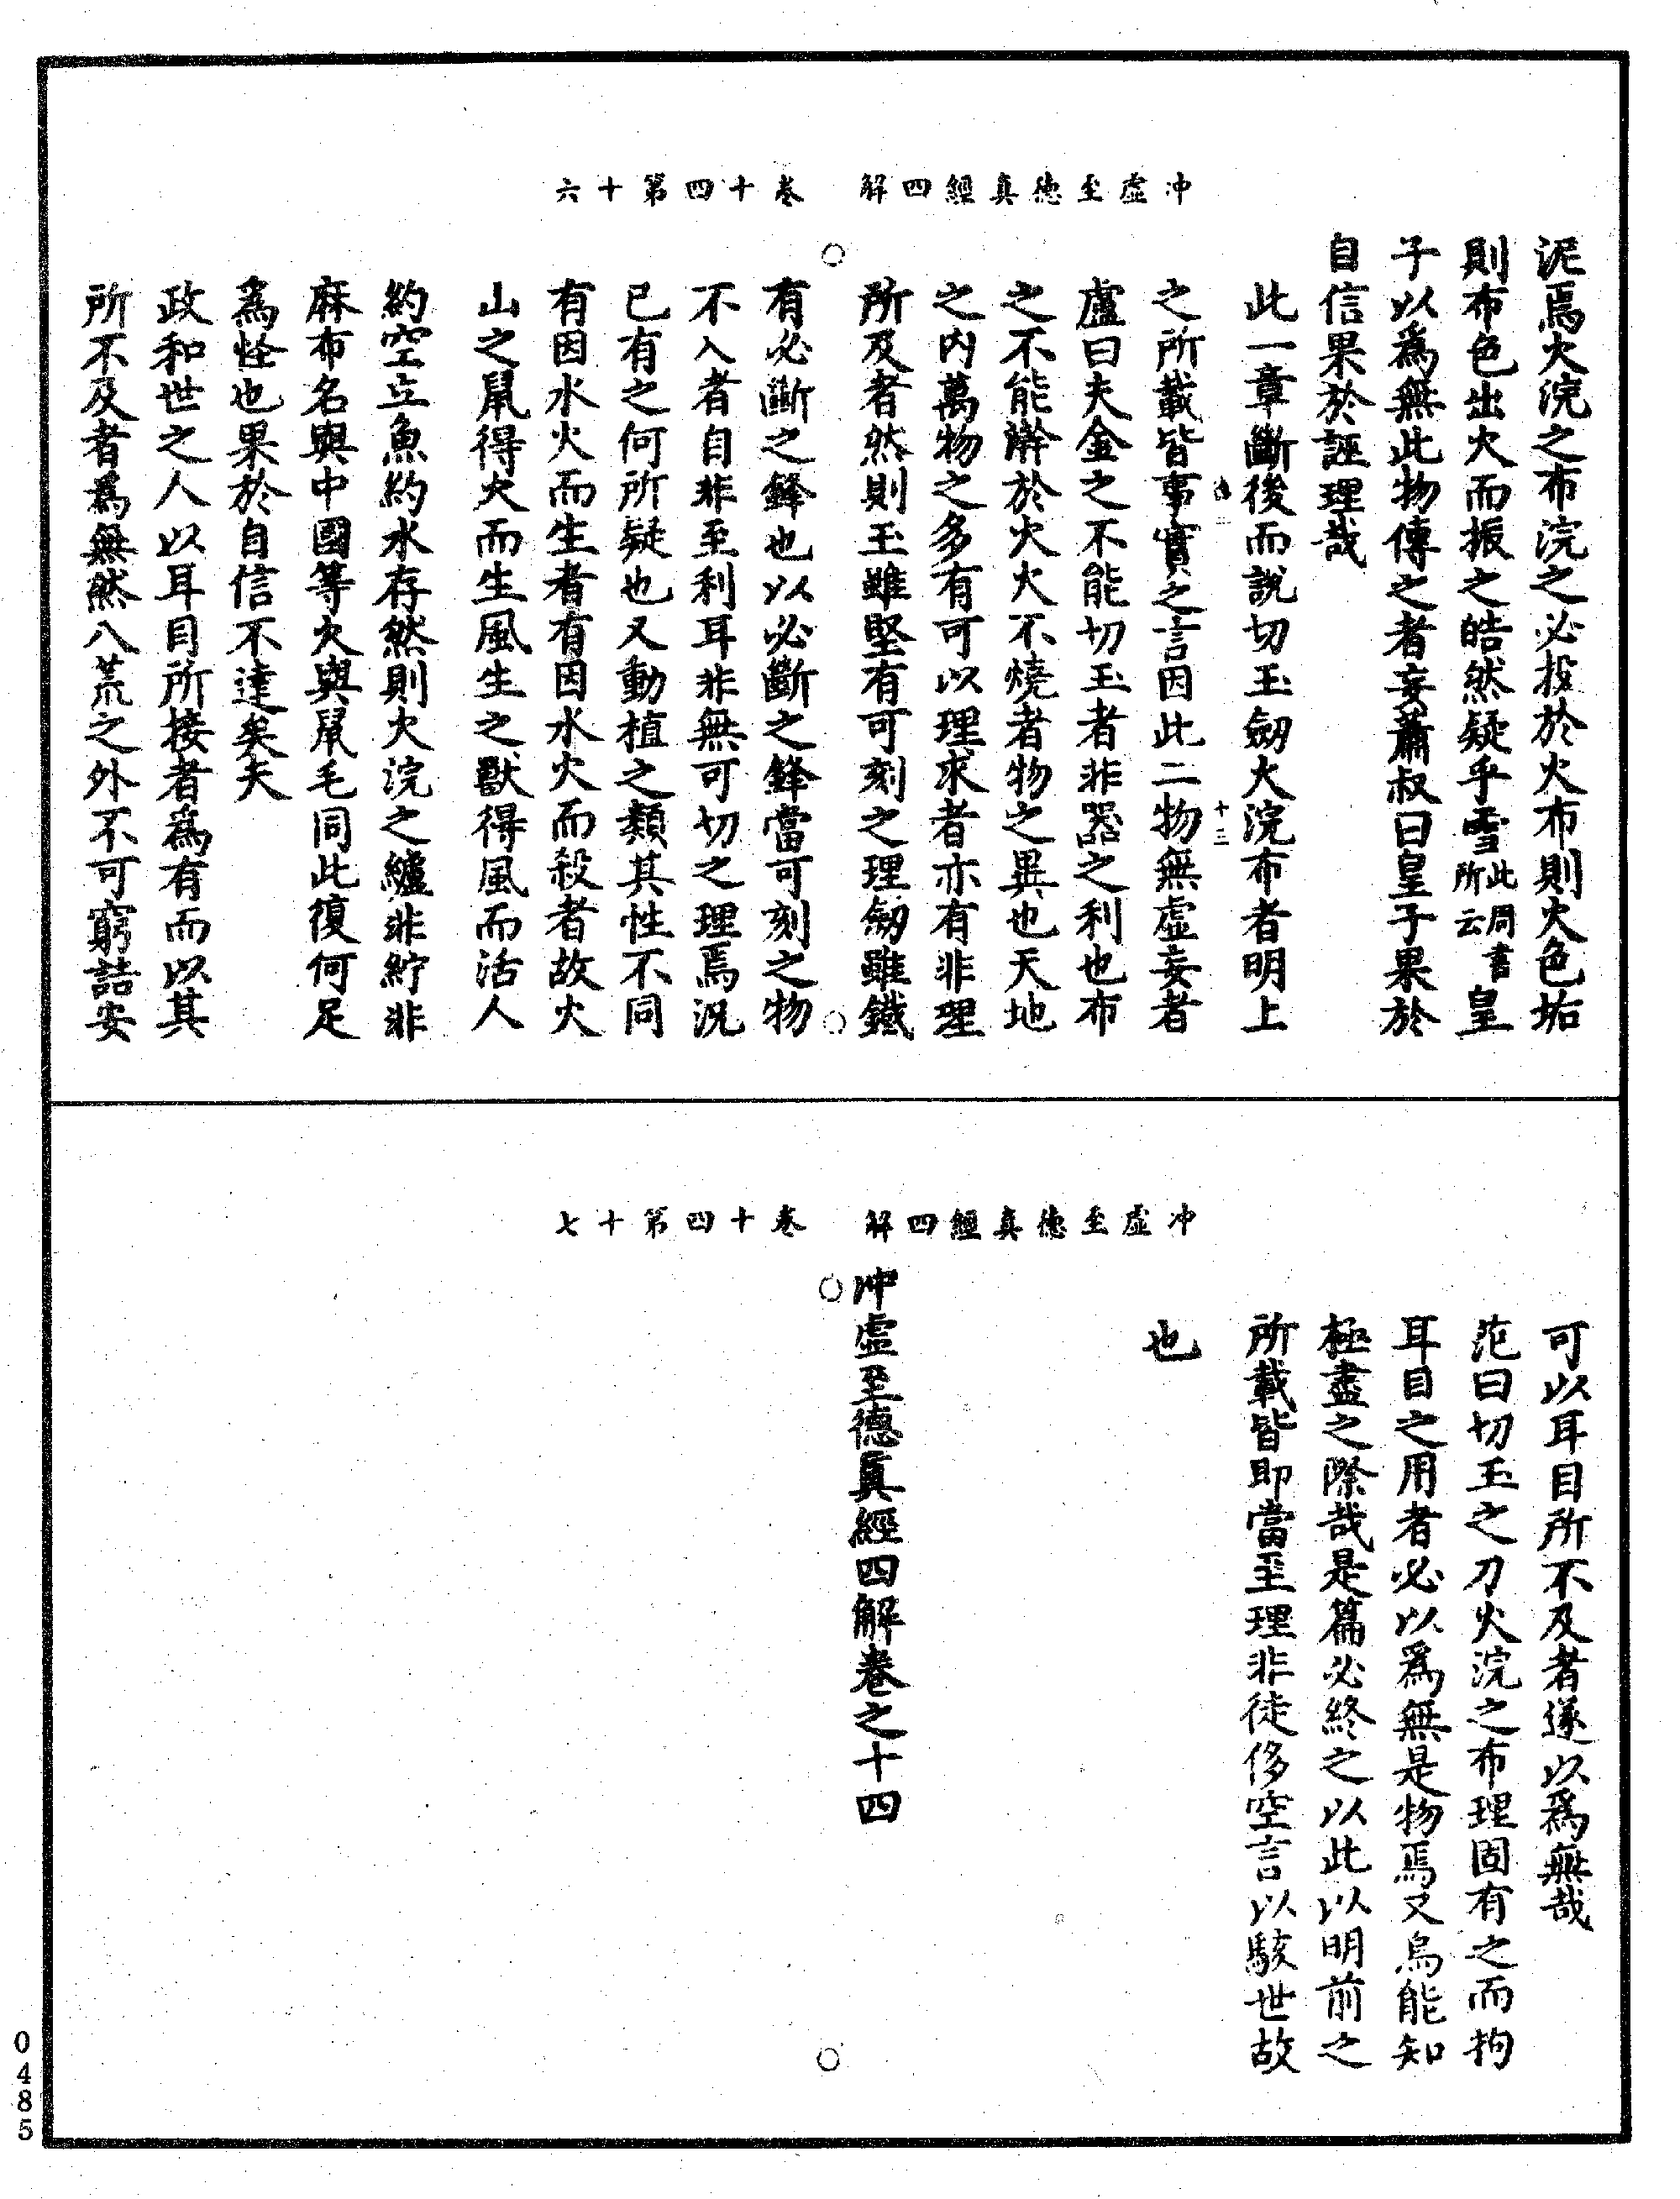 冲虛至德真經四解　卷十四第十六
泥焉火浣之布浣之必投於火布則火色垢
則布色出火而振之皓然疑乎雪此周書所云皇
子以爲無此物傳之者妄蕭叔曰皇子果於
自信果於誣理哉
此一章斷後而說切玉劒火浣布者明上
之所載皆事實之言因此二物無虛妄者
盧曰夫金之不能切玉者非器之利也布
之不能澣於火火不燒者物之異也天地
之内萬物之多有可以理求者亦有非理
所及者然則玉雖堅有可刻之理劒雖鐵
有必斷之鋒也以必斷之鋒當可刻之物
不入者自非至利耳非無可切之理焉況
已有之何所疑也又動植之類其性不同
有因水火而生者有因水火而殺者故火
山之鼠得火而生風生之獸得風而活人
約空立魚約水存然則火浣之纑非紵非
麻布名與中國等火與鼠毛同此復何足
爲怪也果於自信不達矣夫
政和世之人以耳目所接者爲有而以其
所不及者爲無然八荒之外不可窮詰安
十三
冲虛至德真經四解　卷十四第十七
可以耳目所不及者遂以爲無哉
范曰切玉之刀火浣之布理固有之而拘
耳目之用者必以爲無是物焉又烏能知
極盡之際哉是篇必終之以此以明前之
所載皆即當至理非徒侈空言以駭世故
也
冲虛至德真經四解卷之十四
0485